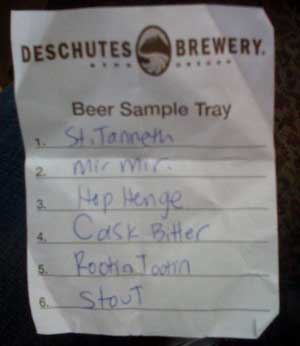 DESCHUTES BREWERY.
BEND OREGON
Beer Sample Tray
1. St. Tanneth
2. Mir Mir.
3. Hop Henge
4. Cask Bitter
5. Rootin Tootin
6. Stout